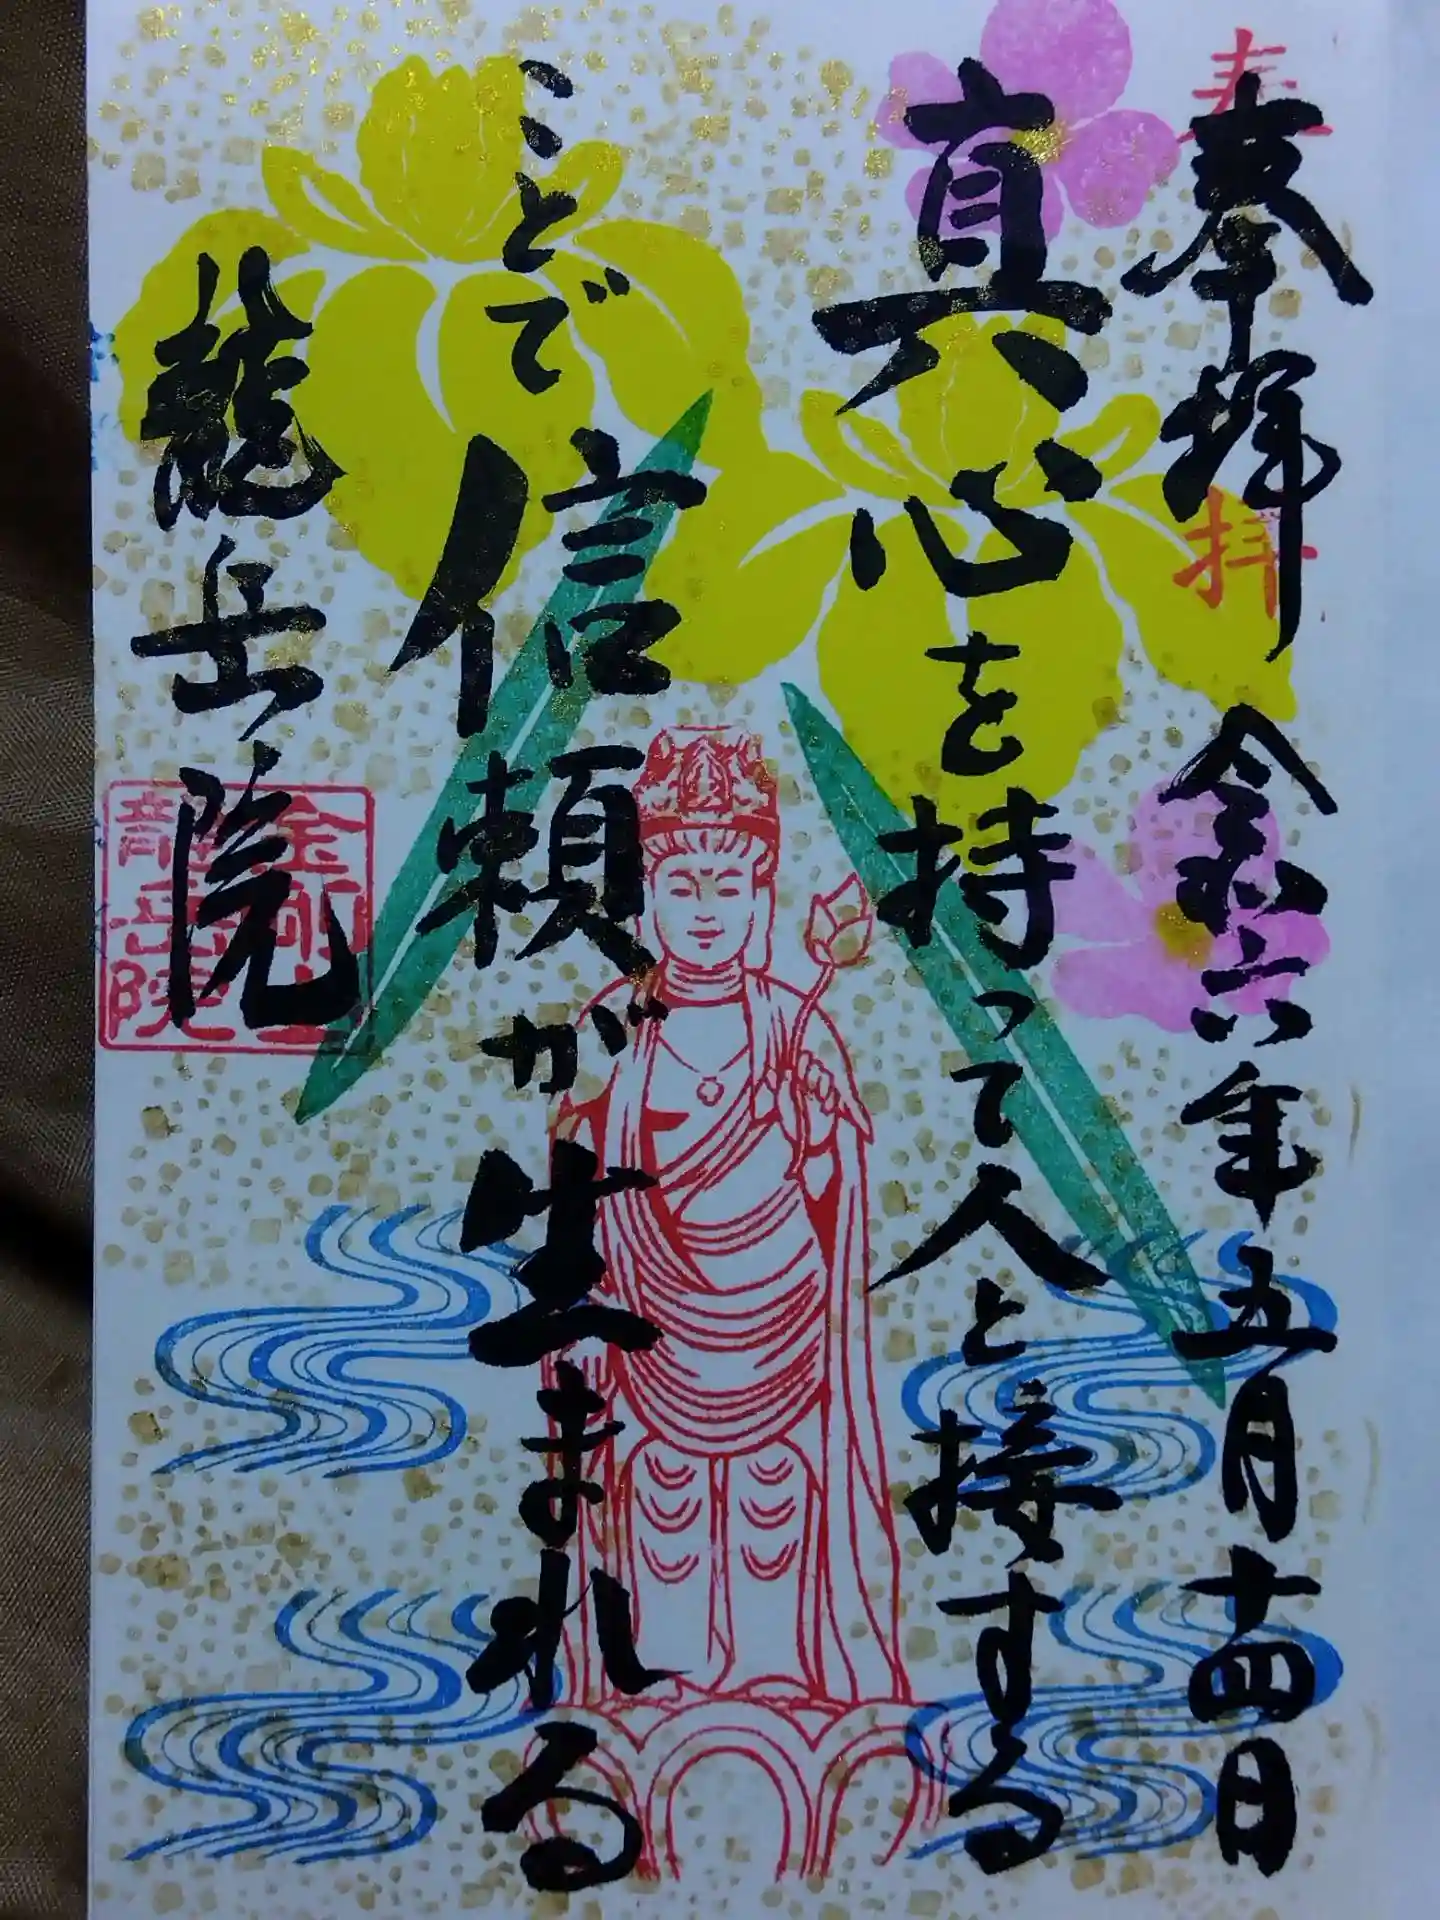 奉拝 令和六年五月十四日
真心を持って人と接する
ことで信頼が生まれる
龍岳院
奉拝
金剛山
龍岳院